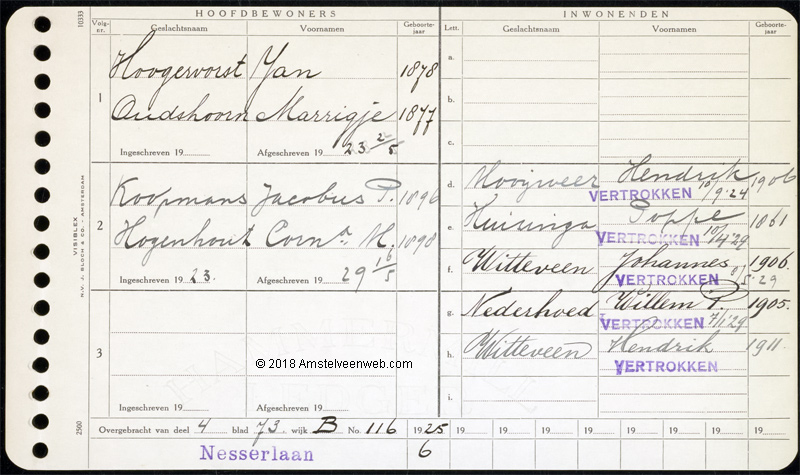 HOOFDBEWONERS
INWONENDEN
Volg-nr.
Geslachtsnaam
Voornamen
Geboorte-jaar
Lett.
Geslachtsnaam
Voornamen
Geboorte-jaar
1
Hoogervorst Jan 1878
Oudshoorn Marrigje 1877
Ingeschreven 19
Afgeschreven 1923 2/5
2
Koopmans Jacobus P. 1896
Hogenhout Corna. M. 1898
Ingeschreven 1923.
Afgeschreven 1929 16/5
3
Ingeschreven 19
Afgeschreven 19
a.
b.
c.
d. Mooijweer Hendrik 1906
VERTROKKEN 10/9-24
e. Huisinga Poppe 1861
VERTROKKEN 10/4'29
f. Witteveen Johannes 1906.
VERTROKKEN
g. Nederhoed Willem P. 1905.
VERTROKKEN 7/1'29
h. Witteveen Hendrik 1911.
VERTROKKEN
i.
© 2018 Amstelveenweb.com
Overgebracht van deel 4 blad 73. wijk B No. 116 1925 19 19 19 19 19 19 19 19
Nesserlaan
6
10333
VISIBLEX
N.V. J. BLOCH & CO. - AMSTERDAM
2500